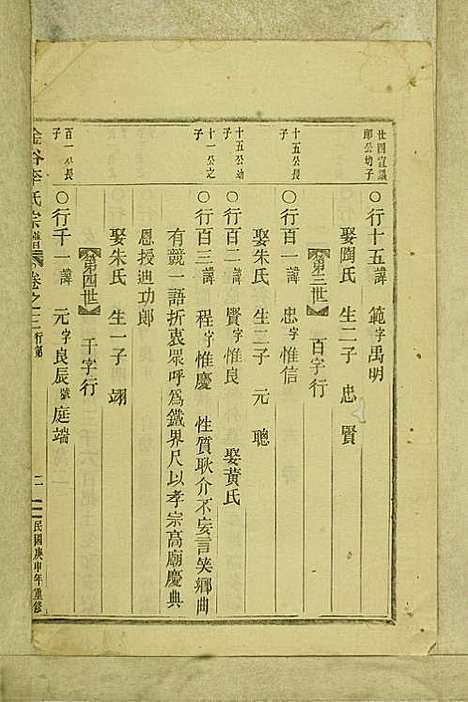 廿四宣議
郎公幼子
〇行十五 諱 範 字禹明
娶陶氏 生二子 忠 賢
第三世 百字行
十五公長
子
〇行百一 諱 忠 字惟信
娶朱氏 生二子 元 聰
十五公幼
子
〇行百二 諱 賢 字惟良 娶黃氏
十一公之
子
〇行百三 諱 程 字惟慶 性質耿介不妄言笑鄉曲
有競一語折衷羣呼爲鐵界尺以孝宗高廟慶典
恩授迪功郎
娶朱氏 生一子 翊
第四世 千字行
百一公長
子
〇行千一 諱 元 字良辰 號庭端
金谷李氏宗譜 卷之二 行第 二 民國庚申年重修